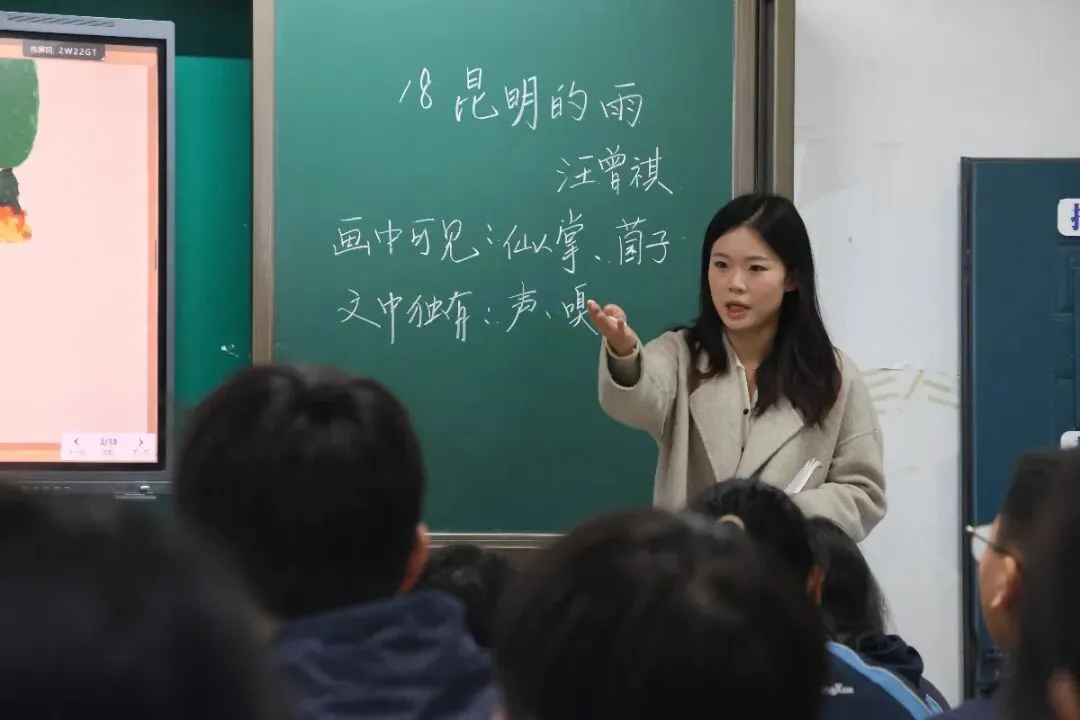 传屏码: 2W22GT
18 昆明的雨
汪曾祺
画中可见：仙人掌、菌子
文中独有：声、嗅
3/18